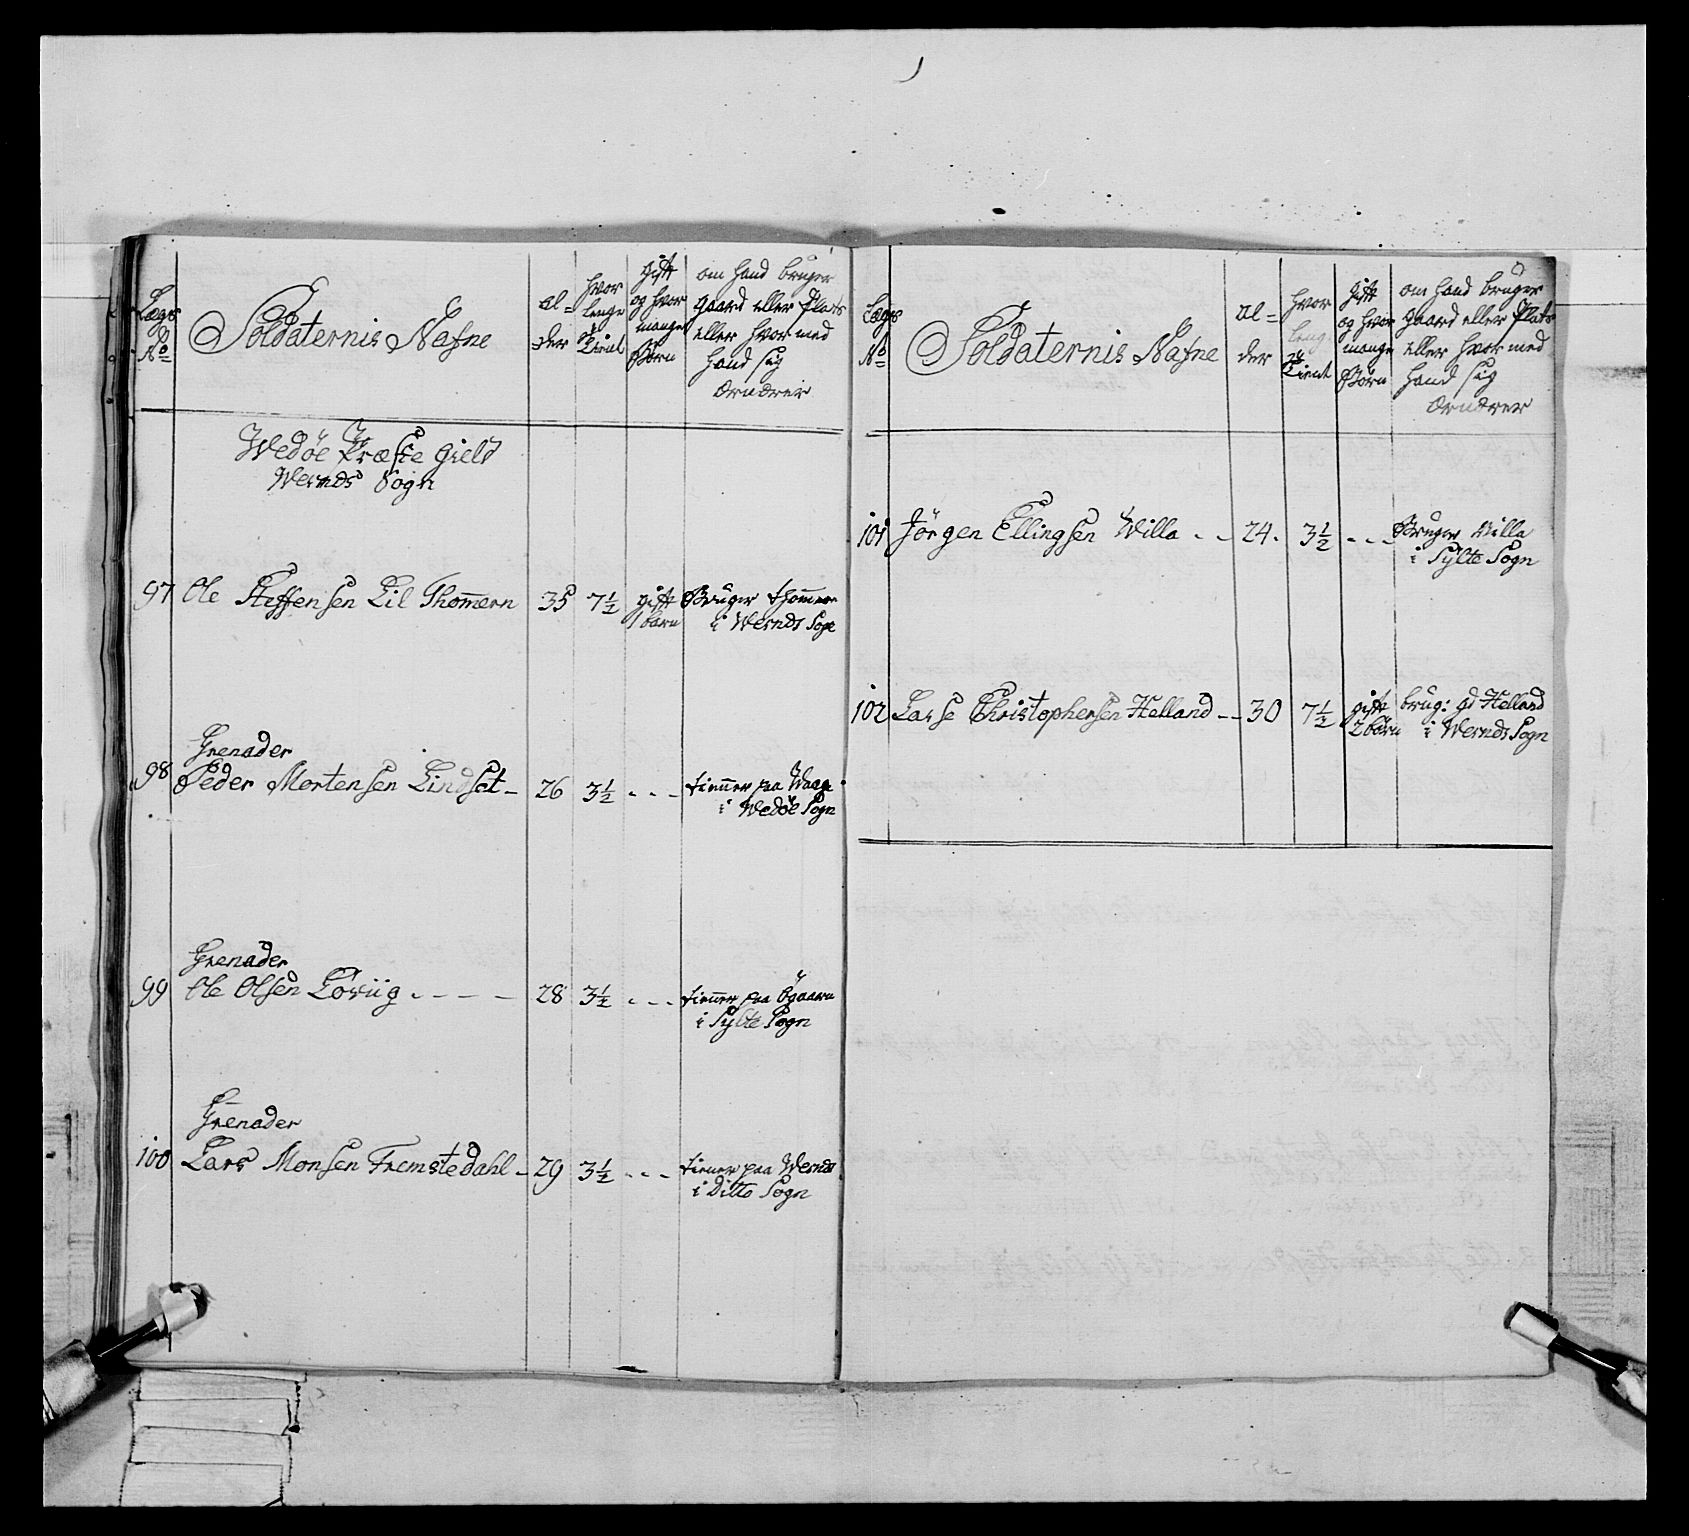 Lægs No
Soldaternis Nafne
Al=
der
hvor
lenge
tient
gift
og hvor
mange
Børn
om hand bruger
gaard eller Plats
eller hvor med
hand sig
Ernærer
Wedøe Præste Gield
Wernds Sogn
97 Ole Steffensen Lil Thomern 35 7½ gift 1 barn Bruger Thommer
i Wernds Sogn
Grenader
98 Peder Mortensen Lindset - 26 3½ - - - tienner paa Waage
i Wedøe Sogn
Grenader
99 Ole Olsen Loviig - - - - 28 3½ - - - tienner paa Øgaarn
i Sylte Sogn
Grenader
100 Lars Monsen Fremstedahl - 29 3½ - - - tiener paa Wernds
i Ditto Sogn
Lægs No
Soldaternis Nafne
Al=
der
hvor
leng
tient
gift
og hvor
mange
Børn
om hand bruger
gaard eller Plats
eller hvor med
hand sig
Ernærer
101 Jörgen Ellingsen Willa - - 24. 3½ - - - Bruger Villa
i Sylte Sogn
102 Larse Christophersen Helland - - 30 7½ gift 2 børn brug: gd Helland
i Wernds Sogn